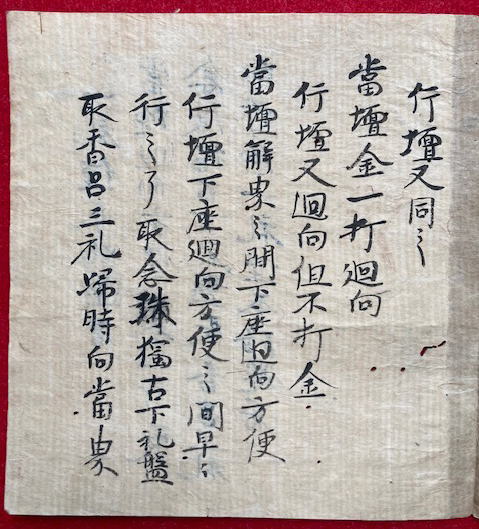 行壇又同之
當壇金一打廻向
行壇又廻向但不打金
當壇解界之間下座廻向方便
行壇下座廻向方便之間早々
行之了取念珠獨古下礼盤
取香呂三礼帰時向當界